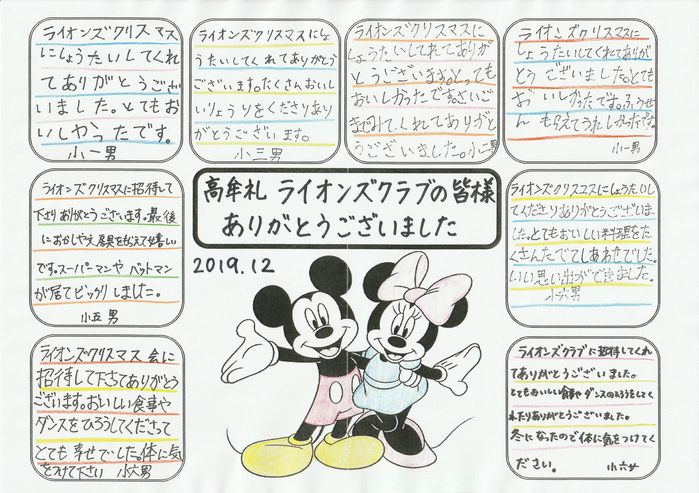 ライオンズクリスマス
にしょうたいしてくれ
てありがとうござい
ました。とてもお
いしかったです。
小一男
ライオンズクリスマスにしょ
うたいしてくれてありがとう
ございます。たくさんおいし
いりょうりをくださりあり
がとうございます。
小三男
ライオンズクリスマスに
しょうたいしてれてありが
とうございます。とっても
おいしかったです。さいご
までみてくれてありがと
うございました。小二男
ライオンズクリスマスに
しょうたいしてくれてありが
とうございました。とても
おいしかったです。ふうせ
んもらえてうれしかったです。
小一男
高牟礼 ライオンズクラブの皆様
ありがとうございました
2019.12
ライオンズクリスマスに招待して
下さりありがとうございます。最後
におかしや文房具を もらえて嬉しい
です。スーパーマンや バットマン
が居てビックリしました。
小五男
ライオンズクリスマスにしょうたいし
てくださりありがとうございま
した。とてもおいしい料理をた
くさんたべてしあわせでした。
いい思い出ができました。
小六男
ライオンズクリスマス会に
招待して下さてありがとう
ございます。おいしい食事や
ダンスをひろうしてくださって
とても幸せでした。体に気
をつけて下さい 小六男
ライオンズクラブに招待してくれ
てありがとうございました。
とてもおいしい食事やダンスのひろうをしてく
れたりありがとうございました。
冬になったので体に気をつけてく
ださい。
小六女